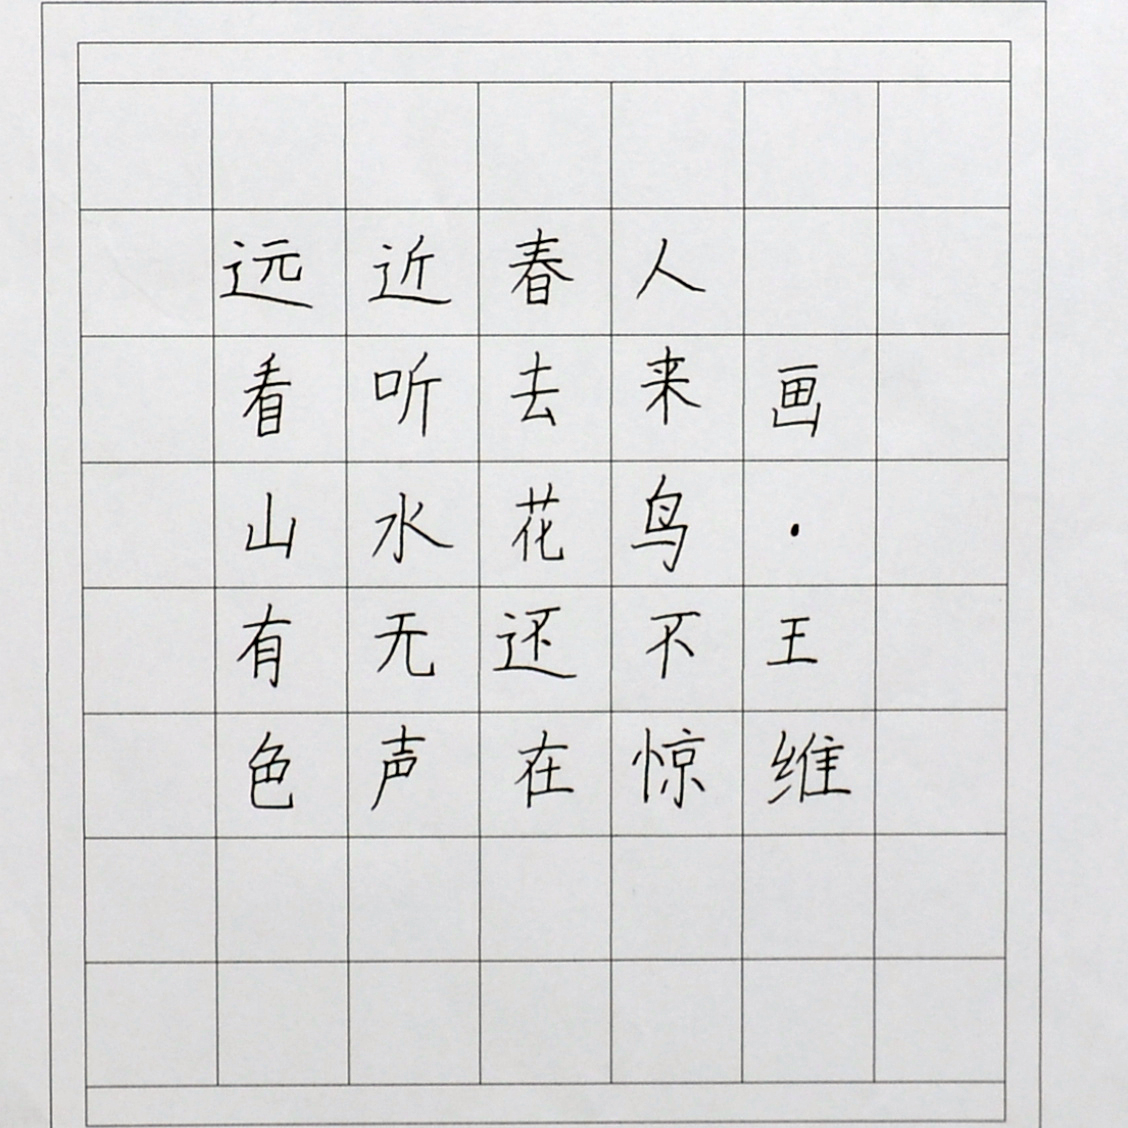 远看山有色
近听水无声
春去花还在
人来鸟不惊
画·王维